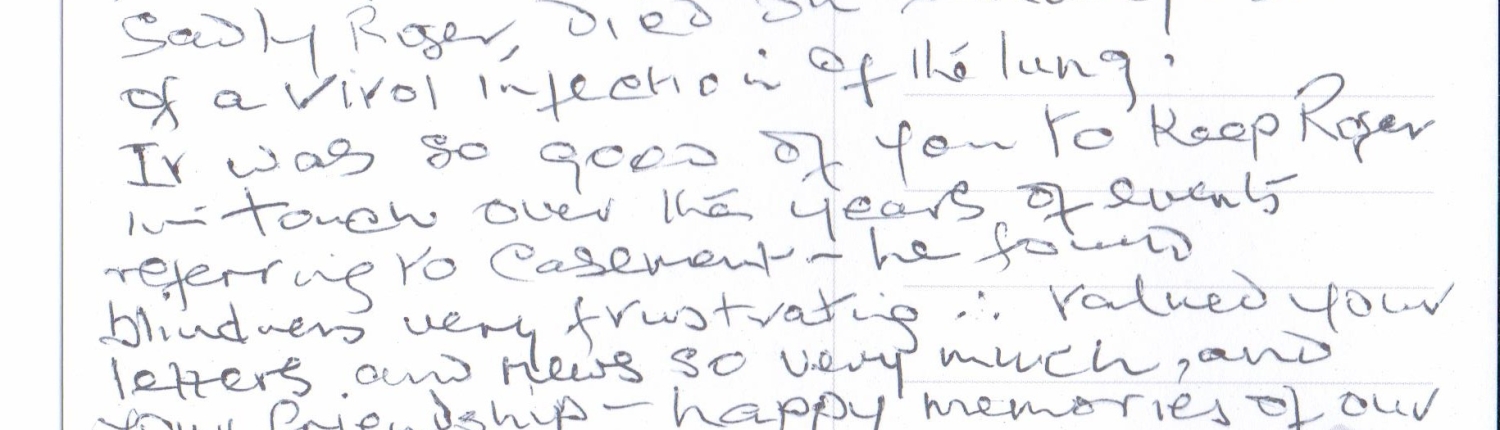 Sadly Roger, Died on
of a viral infection of the lung.
It was so good of you to keep Roger
in touch over the years of events
referring to Casement – he found
blindness very frustrating ∴ valued your
letters and news so very much, and
your friendship – happy memories of our